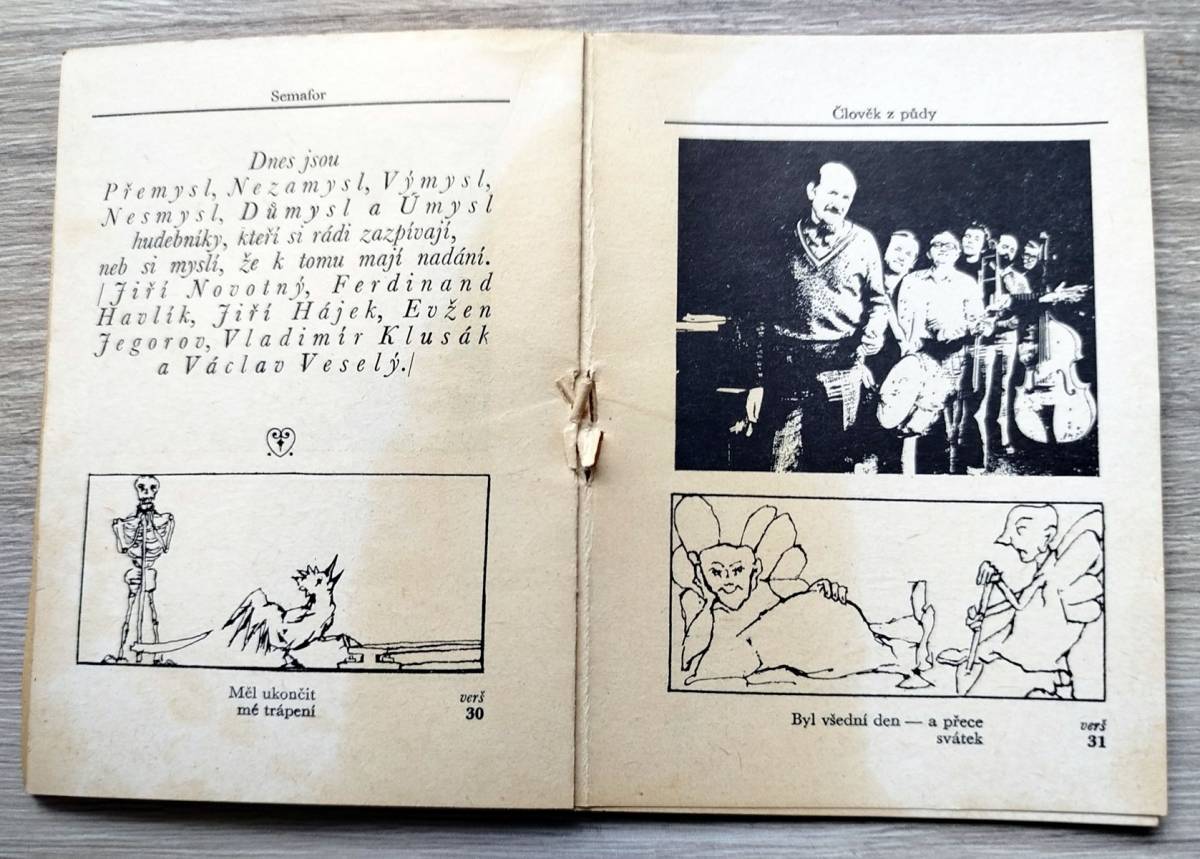 Semafor
Dnes jsou
Přemysl, Nezamysl, Výmysl,
Nesmysl, Důmysl a Úmysl
hudebníky, kteří si rádi zazpívají,
neb si myslí, že k tomu mají nadání.
/Jiří Novotný, Ferdinand
Havlík, Jiří Hájek, Evžen
Jegorov, Vladimír Klusák
a Václav Veselý./
Měl ukončit
mé trápení
verš
30
Člověk z půdy
Byl všední den — a přece
svátek
verš
31